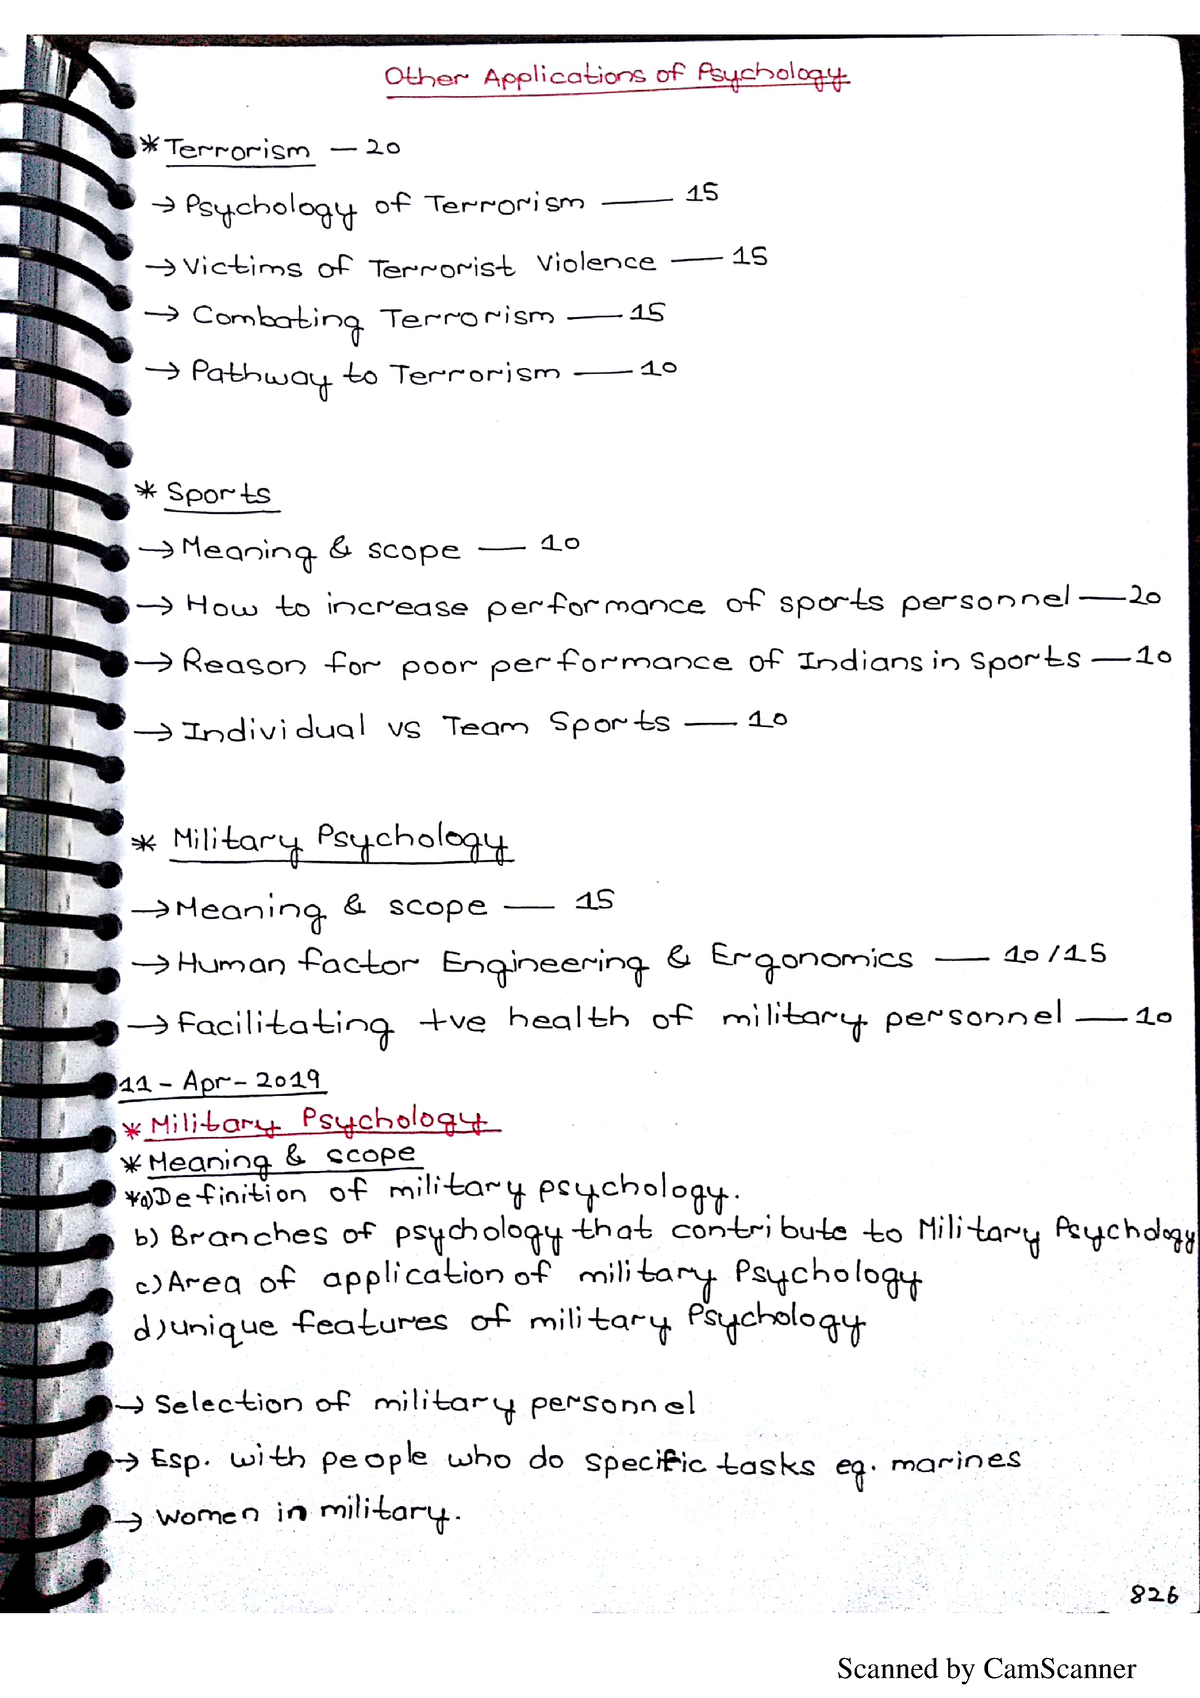 Other Applications of Psychology
* Terrorism — 20
→ Psychology of Terrorism — 15
→ Victims of Terrorist Violence — 15
→ Combating Terrorism — 15
→ Pathway to Terrorism — 10
* Sports
→ Meaning & scope — 10
→ How to increase performance of sports personnel — 20
→ Reason for poor performance of Indians in sports — 10
→ Individual vs Team Sports — 10
* Military Psychology
→ Meaning & scope — 15
→ Human factor Engineering & Ergonomics — 10/15
→ Facilitating +ve health of military personnel — 10
11 - Apr - 2019
* Military Psychology
* Meaning & scope
*a) Definition of military psychology.
b) Branches of psychology that contribute to Military Psychology
c) Area of application of military Psychology
d) unique features of military Psychology
→ Selection of military personnel
→ Esp. with people who do specific tasks eg. marines
→ Women in military.
826
Scanned by CamScanner